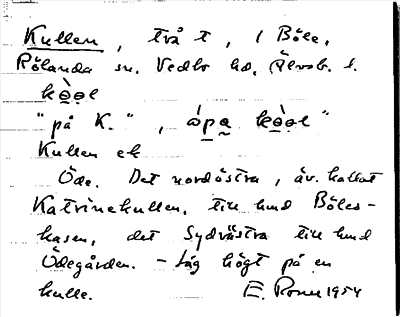 Kullen, två t, i Böle,
Rölanda sn. Vedbo hd, Älvsb. l.
"på K."
Kullen ek
Öde. Det nordöstra, äv. kallat
Katrinekullen, till hmd Böles-
hasen, det Sydvästra till hmd
Ödegården. - Låg högt på en
kulle. E. Rosell 1954